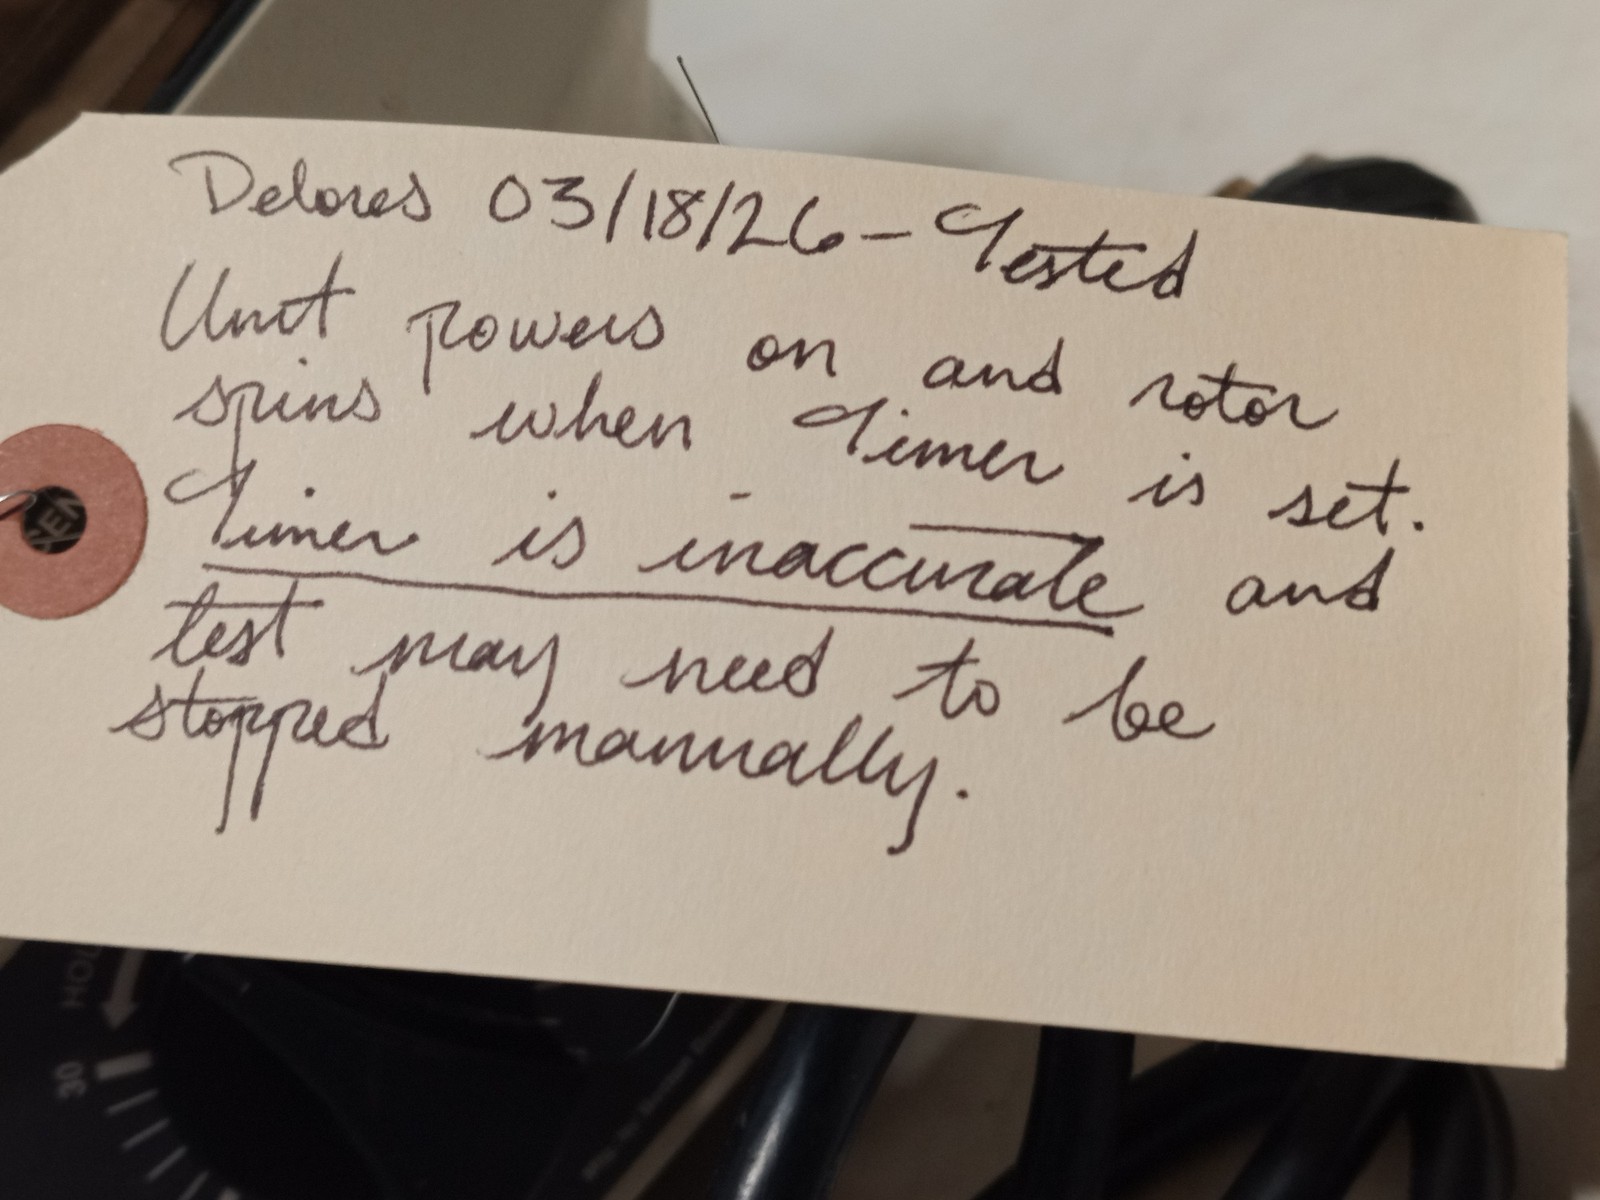 Delores 03/18/26 - Tested
Unit powers on and rotor
spins when timer is set.
Timer is inaccurate and
test may need to be
stopped manually.
HOL
30